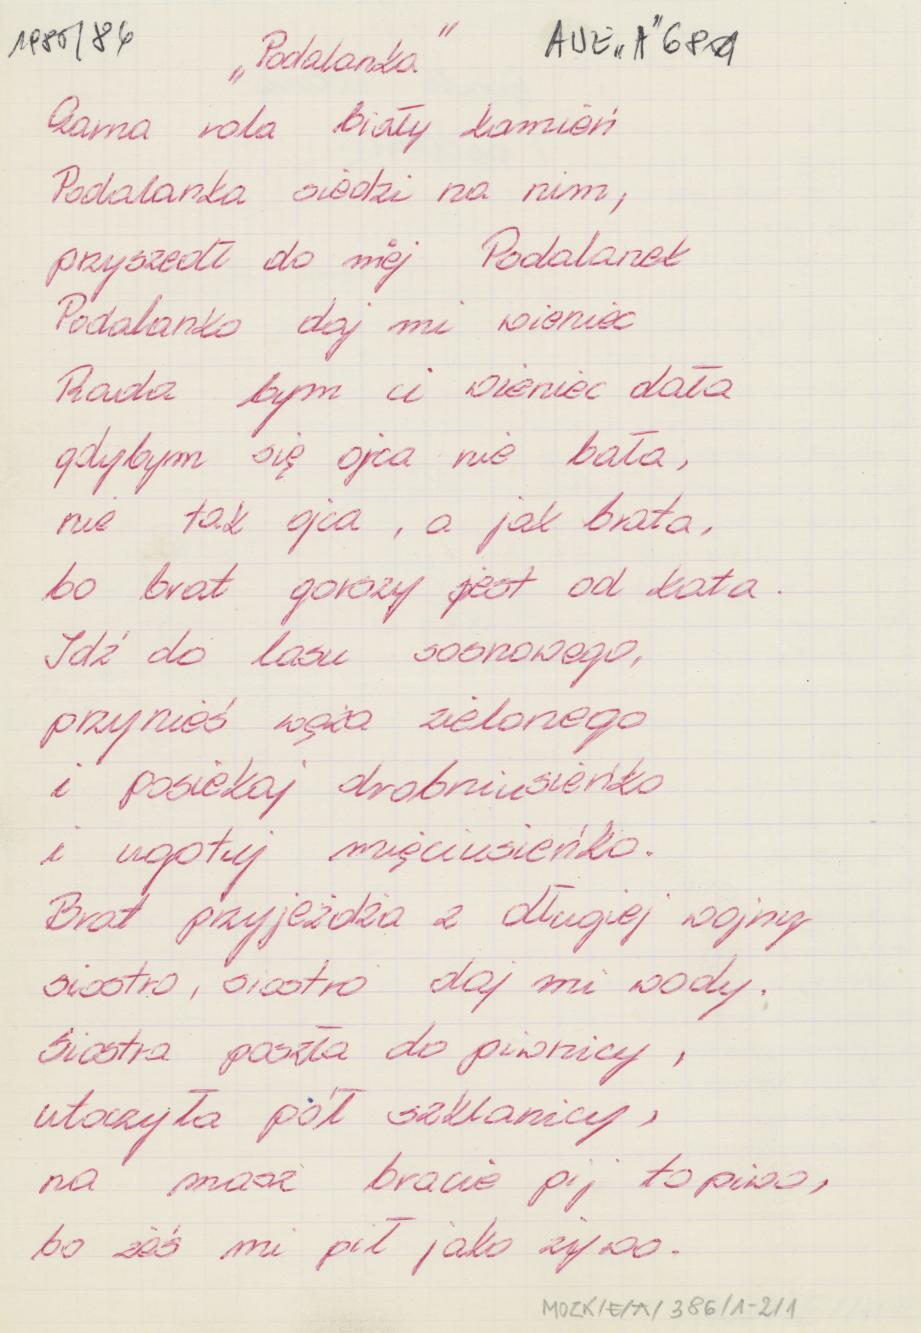 1985/86
AUE „A" 681
„Podalanka"
Czarna rola biały kamień
Podalanka siedzi na nim,
przyszedł do mej Podalanek
Podalanko daj mi wieniec
Rada bym ci wieniec dała
gdybym się ojca nie bała,
nie tak ojca, a jak brata,
bo brat gorszy jest od kata.
Idź do lasu sosnowego,
przynieś węża zielonego
i posiekaj drobniusieńko
i ugotuj mięciusieńko.
Brat przyjeżdża z długiej wojny
siostro, siostro daj mi wody.
Siostra poszła do piwnicy,
utoczyła pół szklanicy,
na masz bracie pij to piwo,
bo żeś mi pił jako żywo.
MOZK/E/A/386/1-2/1